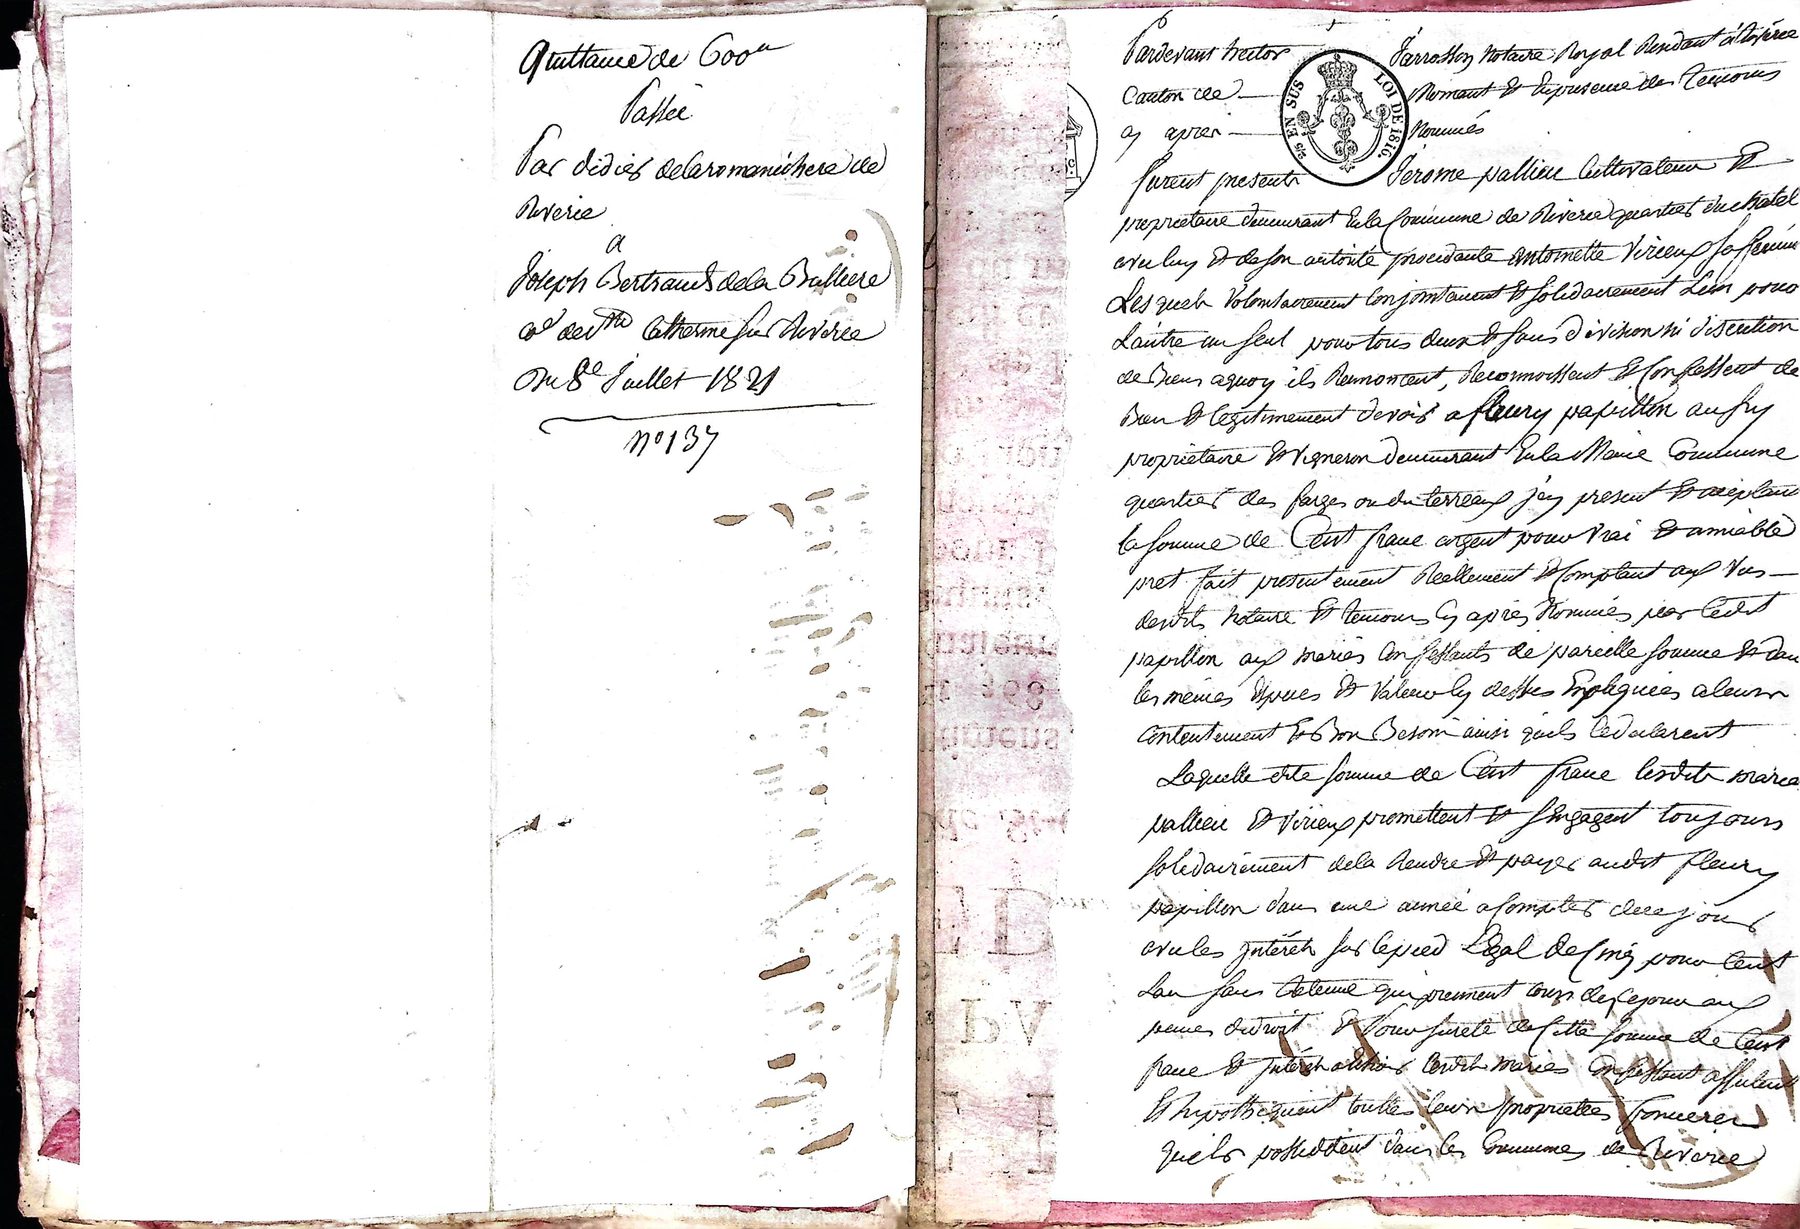 Quittance de 600#
Passée
Par didier delaromanichere de
Riverie
a
Joseph Bertrand de la Bulliere
Cne de Ste Catherine sur Riverie
Du 8e Juillet 1821
n° 137
Pardevant hector Jarrosson Notaire Royal Residant à Riverie
Canton de Mornant & En presence des Temoins
cy apres Nommés
furent presents Jérome pallieu Cultivateur &
proprietaire demeurant En la Commune de Riverie quartier du chatel
avec luy & de son autorité procedante antoinette Virieux sa femme
Lesquels Volontairement Conjointement & solidairement L'un pour
L'autre un seul pour tous deux & sans division ni discution
de Biens aquoy ils Renoncent, Reconnoissent & Confessent de
Bien & legitimement devoir a fleury papillon aussy
proprietaire & Vigneron demeurant En la Meme Commune
quartier des farges ou du terreaux j'cy present & aceptant
la somme de Cent franc argent pour Vrai & amiable
pret fait presentement Reellement & Comptant aux Vus
desdits Notaire & temoins cy après Nommés par ledit
papillon aux mariés Confessants de pareille somme & dans
les mêmes Espèces & Valeur cy dessus Expliquées a leurs
Contentement & Bon Besoin ainsi qu'ils le declarent
Laquelle dite somme de Cent franc lesdits mariés
pallieu & Virieux promettent & s'Engagent toujours
solidairement de la Rendre & payer audit fleury
papillon dans une année a Compter de ce jour
avec les Intérêts sur le pied Légal de Cinq pour Cent
L'an sans Retenue qui prennent cours de ce jour aux
peines de droit & Pour sureté de Cette somme de Cent
franc & Intérêts lesdits mariés Confessant affectent
& hypothequent toutes leurs proprietées foncieres
qu'ils possedent dans les Communes de Riverie
25 EN SUS LOI DE 1816.